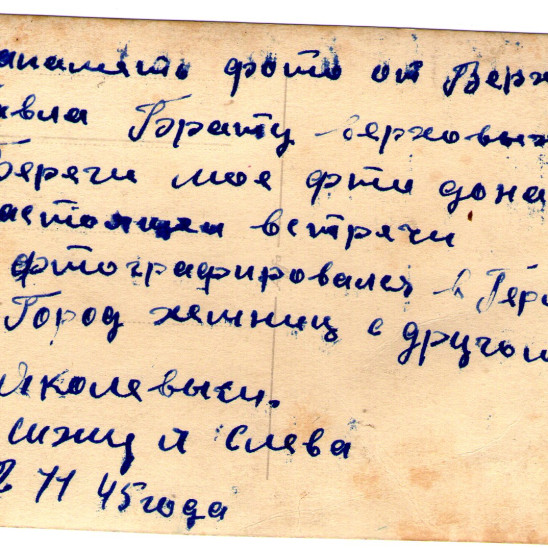 апамять фото от Верх
авла Брату верховых
Береги мое фти дона
астоящеи встречи
фтографировался в Гер
Город хемниц с другом
Яколевыси.
сижу я слева
11 45 года